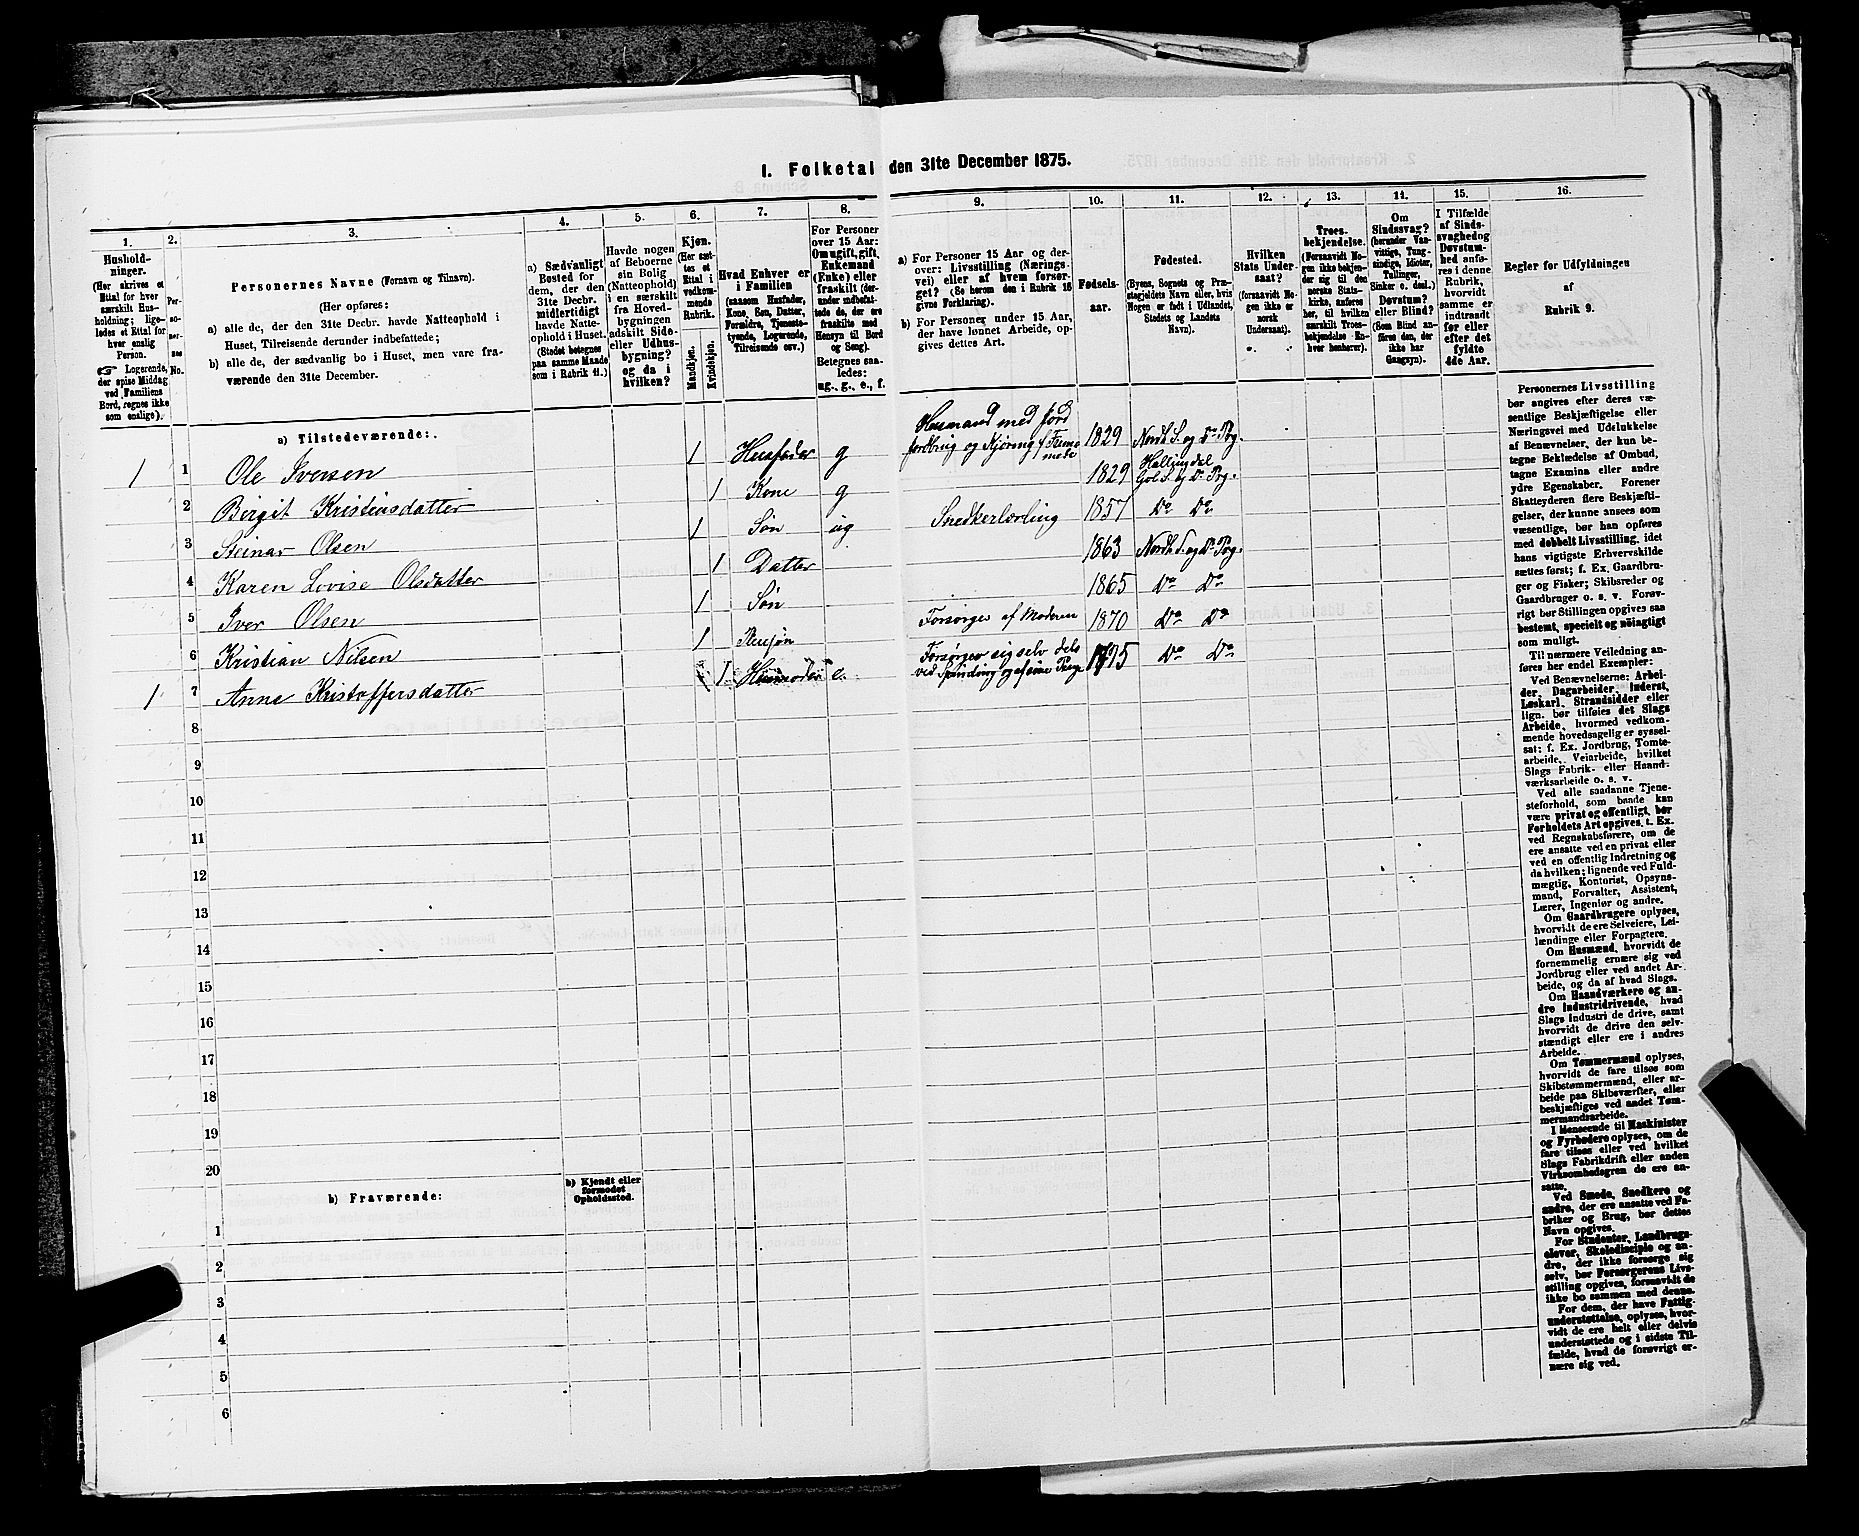 1. Folketal den 31te December 1875.
1. 2. 3. 4. 5. 6. 7. 8. 9. 10. 11. 12. 13. 14. 15. 16.
Hushold-
ninger.
(Her skrives et
Ettal for hver
særskilt Hus-
holdning; lige-
ledes et Ettal for
hver enslig
Person.
☞ Logerende,
der spise Middag
ved Familiens
Bord, regnes ikke
som enslige).
Per-
so-
ner-
nes
No.
Personernes Navne (Fornavn og Tilnavn).
(Her opføres:
a) alle de, der den 31te Decbr. havde Natteophold i
Huset, Tilreisende derunder indbefattede;
b) alle de, der sædvanlig bo i Huset, men vare fra-
værende den 31te December.
a) Sædvanligt
Bosted for
dem, der den
31te Decbr.
midlertidigt
havde Natte-
ophold i Huset.
(Stedet betegnes
paa samme Maade
som i Rubrik 11.)
Havde nogen
af Beboerne
sin Bolig
(Natteophold)
i en særskilt
fra Hoved-
bygningen
adskilt Side-
eller Udhus-
bygning?
og da i
hvilken?
Kjøn.
(Her sæt-
tes et
Ettal i
vedkom-
mende
Rubrik.
Mandkjøn.
Kvindekjøn.
Hvad Enhver er
i Familien
(saasom Husfader,
Kone, Søn, Datter,
Forældre, Tjeneste-
tyende, Logerende,
Tilreisende osv.)
For Personer
over 15 Aar:
Om ugift, gift,
Enkemand
(Enke) eller
fraskilt (der-
under indbefat-
tede de, der ere
fraskilte med
Hensyn til Bord
og Seng).
Betegnes saa-
ledes:
ug., g., e., f.
a) For Personer 15 Aar og der-
over: Livsstilling (Nærings-
vei) eller af hvem forsør-
get? (Se herom den i Rubrik 16
givne Forklaring).
b) For Personer under 15 Aar,
der have lønnet Arbeide, op-
gives dettes Art.
Fødsels-
aar.
Fødested.
(Byens, Sognets og Præ-
stegjeldets Navn eller, hvis
Nogen er født i Udlandet,
Stedets og Landets
Navn).
Hvilken
Stats Under-
saat?
(forsaavidt No-
gen ikke er
norsk
Undersaat).
Troes-
bekjendelse.
(Forsaavidt No-
gen ikke bekjen-
der sig til den
norske Stats-
kirke, anføres
her, til hvilken
særskilt Troes-
bekjendelse En-
hver henhører).
Om
Sindssvag?
(herunder Van-
vittige, Tung-
sindige, Idioter,
Tullinger,
Sinker o. desl.)
Døvstum?
eller Blind?
(Som Blind an-
føres den, der
ikke har
Gangsyn).
I Tilfælde
af Sinds-
svaghed og
Døvstum-
hed anfø-
res i denne
Rubrik,
hvorvidt
samme er
indtraadt
før eller
efter det
fyldte
4de Aar.
Regler for Udfyldningen
af
Rubrik 9.
a) Tilstedeværende:
1 1 Ole Iversen 1 Husfader g Husmand med Jord
Jordbrug og Kjøring 1829 Nordh. S. og Do Prg.
2 Birgit Kristiansdatter 1 Kone g 1829 Hallingdal
Gol S. og Do Prg.
3 Steinar Olsen 1 Søn ug Snedkerlærling 1857 Do Do
4 Karen Lovise Olsdatter 1 Datter 1863 Nordh. S. og Do Prg.
5 Iver Olsen 1 Søn 1865 Do Do
6 Kristian Nilsen 1 Pleiesøn Forsørges af Moderen 1870 Do Do
1 7 Anne Kristoffersdatter 1 Husmoder e. Forsørger sig selv dels
ved Spinding og af sine 1795 Do Do
8
9
10
11
12
13
14
15
16
17
18
19
20
b) Fraværende:
b) Kjendt eller
formodet
Opholdssted.
1
2
3
4
5
6
Personernes Livsstilling
bør angives efter deres væ-
sentlige Beskjæftigelse eller
Næringsvei med Udelukkelse
af Benævnelser, der kun be-
tegne Beklædelse af Ombud,
tagne Examina eller andre
ydre Egenskaber. Forener
Skatteyderen flere Beskjæfti-
gelser, der kunne ansees som
væsentlige, bør han opføres
med dobbelt Livsstilling, idet
hans vigtigste Erhvervskilde
sættes først; f. Ex. Gaardbru-
ger og Fisker; Skibsreder og
Gaardbruger o. s. v. Forøv-
rigt bør Stillingen opgives saa
bestemt, specielt og nøiagtigt
som muligt.
Til nærmere Veiledning an-
føres her endel Exempler:
Ved Benævnelserne: Arbei-
der, Dagarbeider, Inderst,
Løskarl, Strandsidder eller
lign. bør tilføies det Slags
Arbeide, hvormed vedkom-
mende hovedsagelig er syssel-
sat: f. Ex. Jordbrug, Tomte-
arbeide, Veiarbeide, hvilket
Slags Fabrik- eller Haand-
værksarbeide o. s. v.
Ved alle saadanne Tjene-
steforhold, som baade kan
være privat og offentligt, bør
Forholdets Art opgives, t. Ex.
ved Regnskabsførere, om de
ere ansatte ved en privat eller
ved en offentlig Indretning og
da hvilken; lignende ved Fuld-
mægtig, Kontorist, Opsyns-
mand, Forvalter, Assistent,
Lærer, Ingeniør og andre.
Om Gaardbrugere oplyses,
hvorvidt de ere Selveiere, Lei-
lændinge eller Forpagtere.
Om Husmænd, hvorvidt de
fornemmelig ernære sig ved
Jordbrug eller ved andet Ar-
beide, og da af hvad Slags.
Om Haandværkere og an-
dre Industridrivende, hvad
Slags Industri de drive, samt
hvorvidt de drive den selv-
stændigt eller ere i andres
Arbeide.
Om Tømmermænd oplyses,
hvorvidt de fare tilsøs som
Skibstømmermænd, eller ar-
beide paa Skibsværfter, eller
beskjæftiges ved andet Tøm-
mermandsarbeide.
I Henseende til Maskinister
og Fyrbødere oplyses, om de
fare tilsøs eller ved hvilket
Slags Fabrikdrift eller anden
Virksomhedsgren de ere an-
satte.
Ved Smede, Snedkere og
andre, der ere ansatte ved Fa-
briker og Brug, bør dettes
Navn opgives.
For Studenter, Landbrugs-
elever, Skoledisciple og an-
dre, der ikke forsørge sig
selv, bør Forsørgerens Livs-
stilling opgives, forsaavidt de
ikke bo sammen med denne.
For dem, der have Fattig-
understøttelse, oplyses, hvor-
vidt de ere helt eller delvis
understøttede og i sidste Til-
fælde, hvad de forøvrigt er-
nære sig ved.